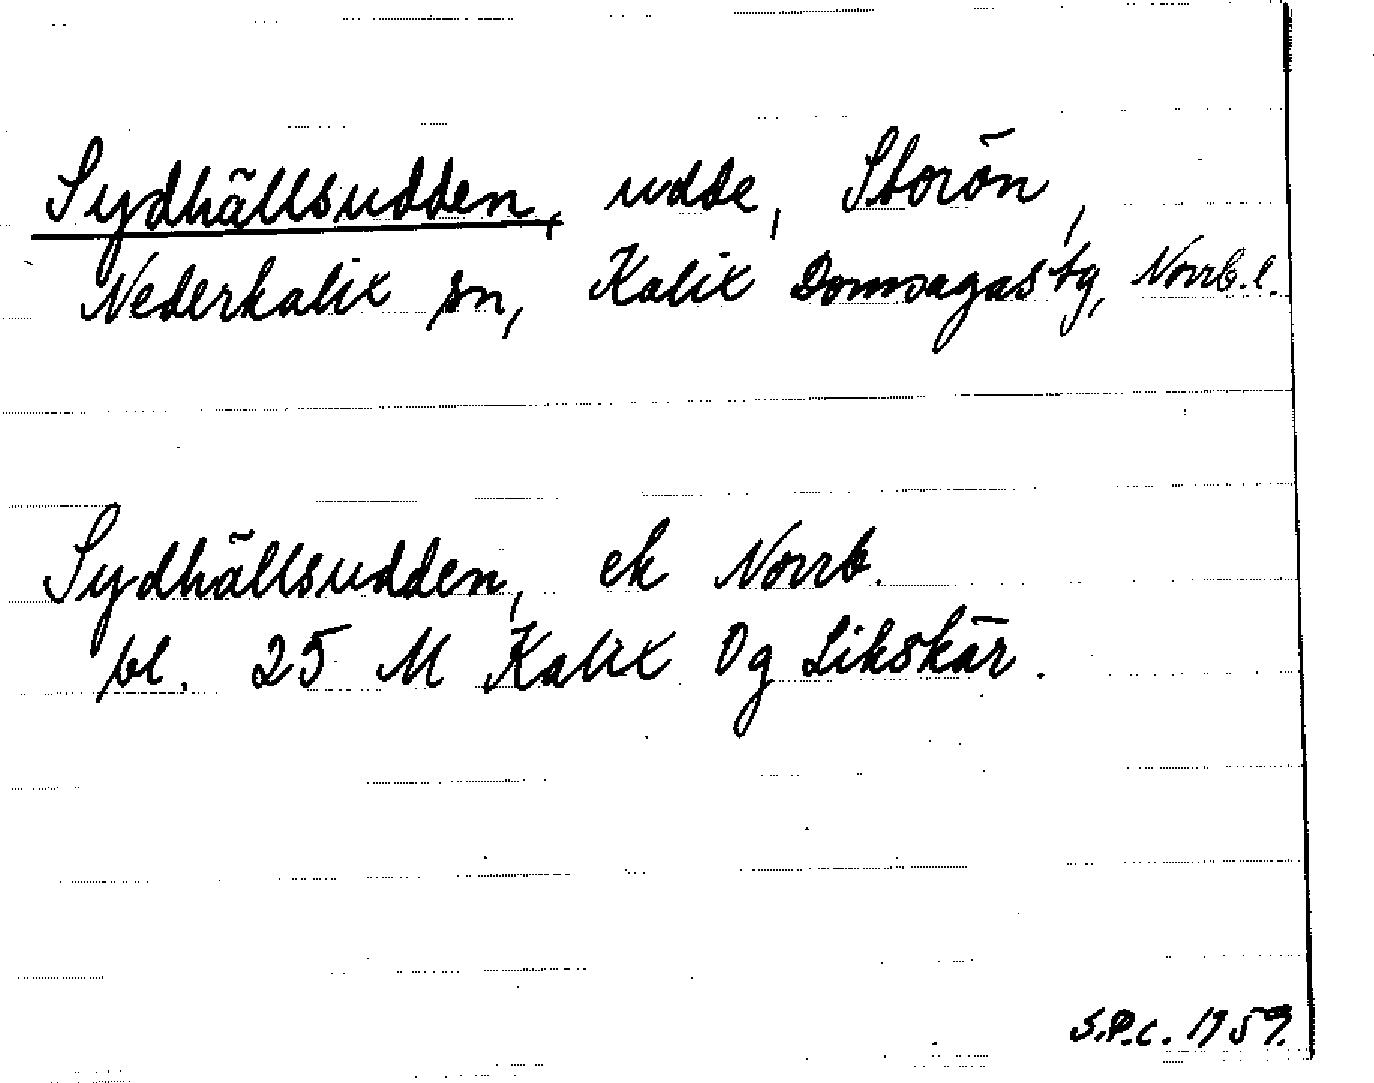 Sydhällsudden, udde, Storön,
Nederkalix sn, Kalix Domsagas tg, Norrb.l.
Sydhällsudden, ek Norrb.
bl. 25 M Kalix Og Likskär.
S.P.C. 1959.